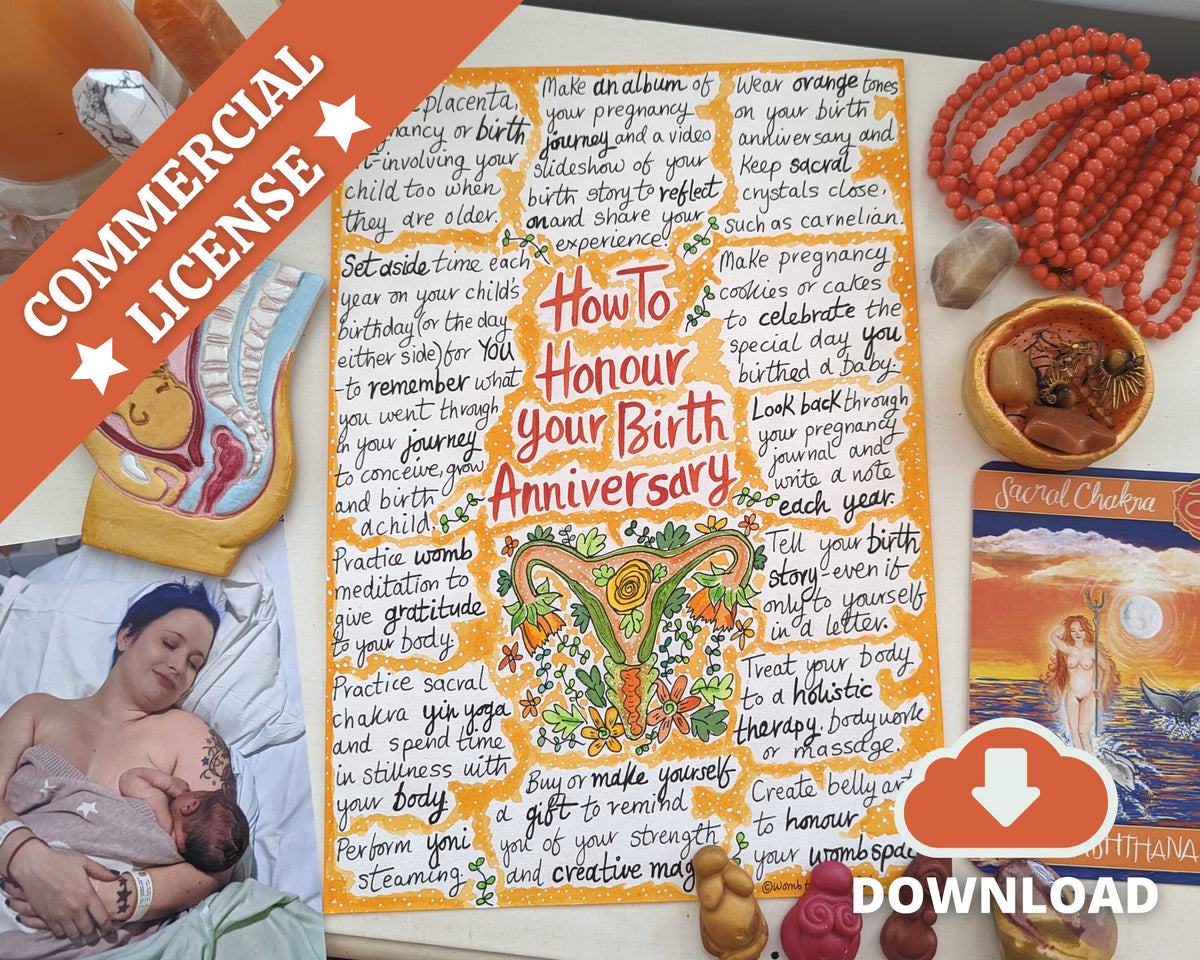 COMMERCIAL
LICENSE
placenta,
or birth
involving your
child too when
they are older.
Make an album of
your pregnancy
journey and a video
slideshow of your
birth story to reflect
on and share your
experience.
Wear orange tones
on your birth
anniversary and
keep sacral
crystals close,
such as carnelian.
Set aside time each
year on your child's
birthday (or the day
either side) for YOU
to remember what
you went through
in your journey
to conceive, grow
and birth
a child.
How To
Honour
your Birth
Anniversary
Make pregnancy
cookies or cakes
to celebrate the
special day you
birthed a Baby.
Look back through
your pregnancy
journal and
write a note
each year.
Practice womb
meditation to
give gratitude
to your body.
Tell your birth
story - even if
only to yourself
in a letter.
Practice sacral
chakra yin yoga
and spend time
in stillness with
your body
Treat your body
to a holistic
therapy, bodywork
or massage.
Perform yoni
steaming.
Buy or make yourself
a gift to remind
you of your strength
and creative mag
Create belly art
to honour
your womb spa
©Womb
Sacral Chakra
HTHANA
DOWNLOAD